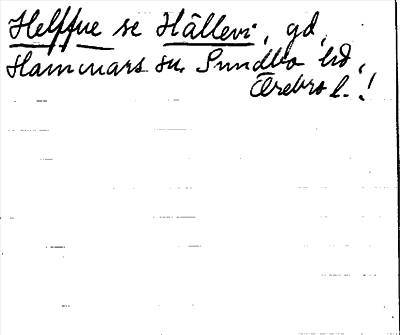 Helffue se Hällevi, gd,
Hammars sn. Sundbo hd,
Örebro l. !